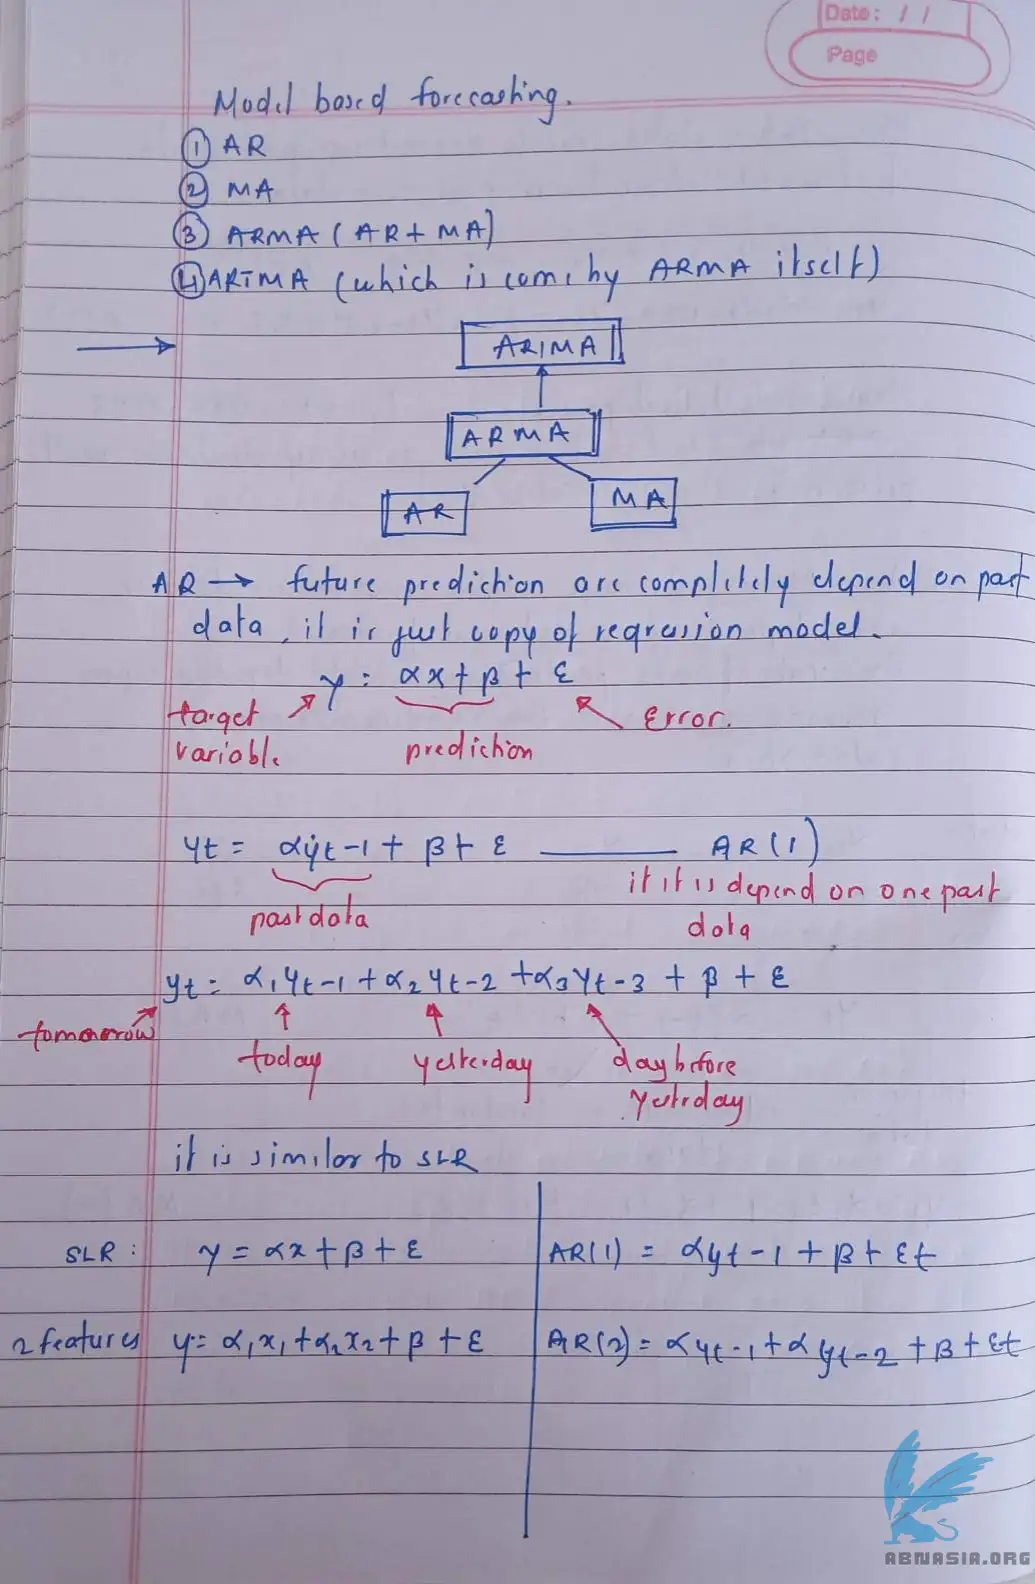 Date: / /
Page
Model based forecasting.
① AR
② MA
③ ARMA (AR+MA)
④ ARIMA (which is come by ARMA itself)
ARIMA
ARMA
AR
MA
AR → future prediction are completely depend on past
data, it is just copy of regression model.
y = αx + β + ε
target variable
prediction
Error.
yt = αyt-1 + β + ε —— AR(1)
past data
if it is depend on one past
data
yt = α1yt-1 + α2yt-2 + α3yt-3 + β + ε
tomorrow
today
yesterday
day before
yesterday
it is similar to SLR
SLR : y = αx + β + ε
AR(1) = αyt-1 + β + εt
2 features y = α1x1 + α2x2 + β + ε
AR(2) = αyt-1 + αyt-2 + β + εt
ABNASIA.ORG